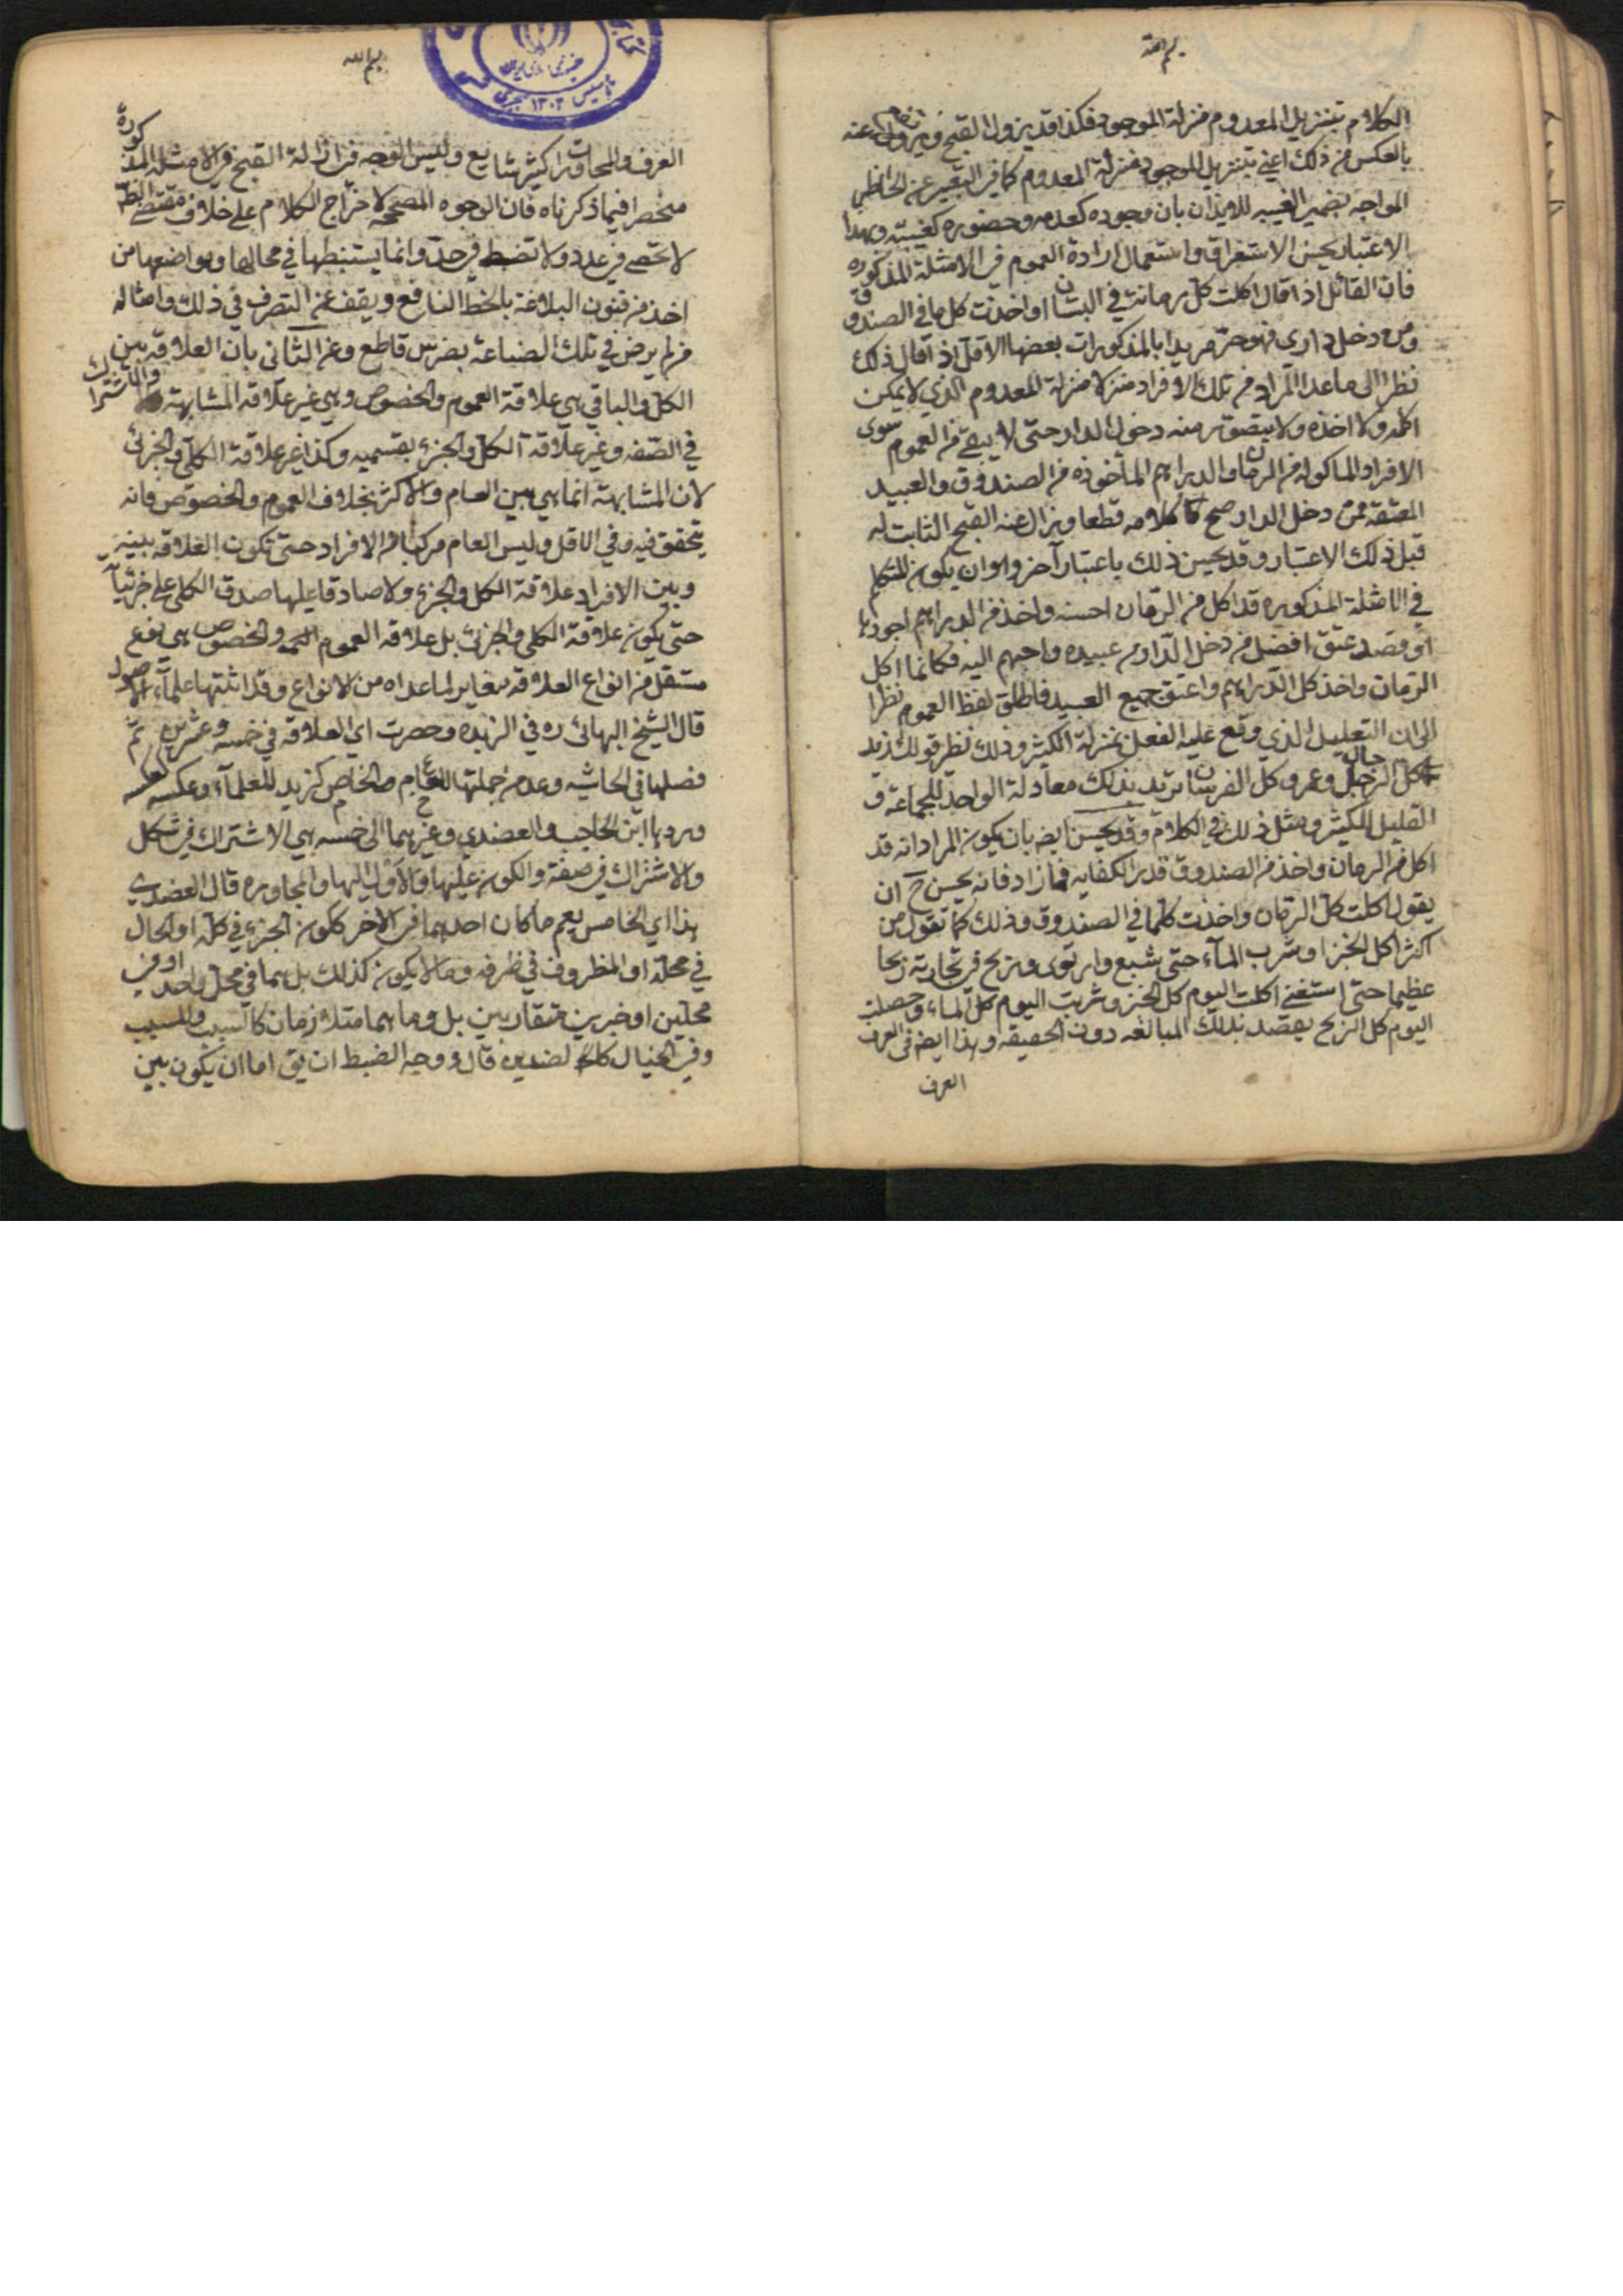 بسم الله
الكلام تنزيل المعدوم منزلة الموجود فكذا قد يزول القبح ويزول عنه
بالعكس من ذلك اعني تنزيل الموجود منزلة المعدوم كما في التعبير عن الحاضر
المواجه بضمير الغيبه للايذان بان وجوده كعدمه وحضوره كغيبته وبهذا
الاعتبار يحسن الاستغراق واستعمال ارادة العموم في الامثلة المذكوره
فان القائل اذا قال اكلت كل رمانة في البستان او اخذت كل ما في الصندوق
ومن دخل داري فهو حر مريدا بالمذكورات بعضها الاقل اذ قال ذلك
نظرا الى ما عدا المراد من تلك الافراد منزلا منزلة المعدوم الذي لا يمكن
اكله ولا اخذه ولا يتصور منه دخول الدار حتى لا يبقى من العموم سوى
الافراد الماكوله من الرمان والدراهم المأخوذه من الصندوق والعبيد
المعتقه ممن دخل الدار صح كلامه قطعا وزال عنه القبح الثابت له
قبل ذلك الاعتبار وقد يحسن ذلك باعتبار آخر وهو ان يكون المتكلم
في الامثلة المذكوره قد اكل من الرمان احسنه واخذ من الدراهم اجودها
او قصد عتق افضل من دخل الدار من عبيده واحبهم اليه فكانما اكل
الرمان واخذ كل الدراهم واعتق جميع العبيد فاطلق لفظ العموم نظرا
الى ان القليل الذي وقع عليه الفعل بمنزلة الكثير وذلك نظير قولك زيد
كل الرجال وعمرو كل الفرسان تريد بذلك معادلة الواحد للجماعة و
القليل للكثير ومثل ذلك في الكلام وقد يحسن ايضا بان يكون المراد انه قد
اكل من الرمان واخذ من الصندوق قدر الكفايه فما زاد فانه يحسن ح ان
يقول اكلت كل الرمان واخذت كلما في الصندوق وذلك كما تقول من
اكثر اكل الخبز او شرب الماء حتى شبع وارتوى وربح في تجارته ربحا
عظيما حتى استغنى اكلت اليوم كل الخبز وشربت اليوم كل الماء وحصلت
اليوم كل الربح يقصد بذلك المبالغه دون الحقيقه وهذا ايضا في العرف
العرف
بسم الله
العرف والمحاورات كثير شايع وليس الوجه في ازالة القبح في الامثله المذكورة
منحصرا فيما ذكرناه فان الوجوه المصححه لاخراج الكلام على خلاف مقتضى الظ
لا تحصى في عدد ولا تضبط في حد وانما يستنبطها في محالها ومواضعها من
اخذ من فنون البلاغة بالحظ النافع ويقف عن التصرف في ذلك وامثاله
من لم يرض في تلك الصناعة بضرس قاطع وعن الثاني بان العلاقه بين
الكل والباقي هي علاقة العموم والخصوص وهي غير علاقه المشابهة والاشتراك
في الصفه وغير علاقة الكل والجزء بقسميه وكذا غير علاقة الكلي والجزئي
لان المشابهة انما هي بين العام والاكثر بخلاف العموم والخصوص فانه
يتحقق فيه وفي الاقل وليس العام مركبا من الافراد حتى تكون العلاقه بينه
وبين الافراد علاقة الكل والجزء ولا صادقا عليها صدق الكلي على جزئياته
حتى يكون علاقة الكلي والجزئي بل علاقه العموم والخصوص هي نوع
مستقل من انواع العلاقه مغاير لما عداه من الانواع وقد اثبتها علماء الاصول
قال الشيخ البهائي ره في الزبده وحصرت اي العلاقه في خمسه وعشرين ثم
فصلها في الحاشيه وعد من جملتها العام والخاص كزيد للعلماء وعكسه
وردها ابن الحاجب والعضدي وغيرهما الى خمسه هي الاشتراك في شكل
والاشتراك في صفة والكون عليها والاول اليها والمجاوره قال العضدي
هذا اي الخامس يعم ما كان احدهما في الاخر ككون الجزء في كله او الحال
في محله او المظروف في ظرفه وما لا يكون كذلك بل هما في محل واحد او في
محلين او خبرين متقاربين بل وما هما متلازمان كالسبب والمسبب
وفي الخيال كالضدين قال ووجه الضبط ان يق اما ان يكون بين